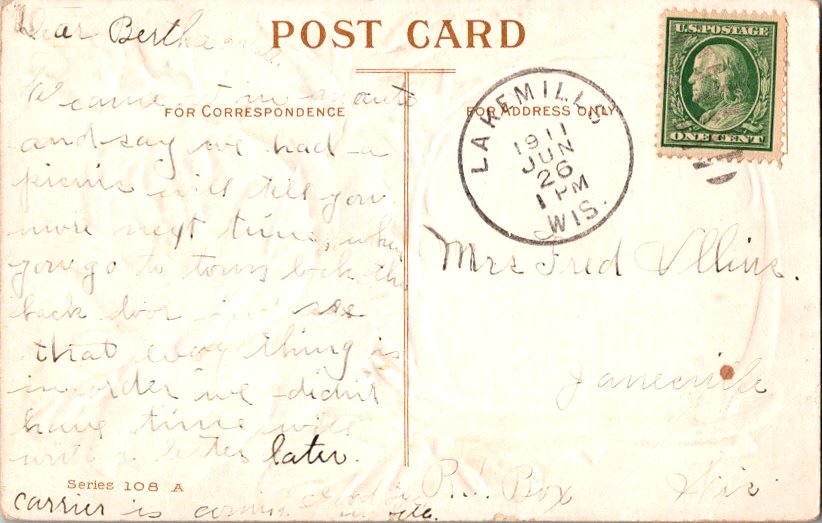 POST CARD
U.S. POSTAGE
ONE CENT
FOR CORRESPONDENCE
FOR ADDRESS ONLY
LAKE MILLS
1911
JUN
26
1 PM
WIS.
Dear Bertha
We came in auto
and say we had a
picnic will tell you
more next time, when
you go to town lock the
back door and see
that every thing is
in order we didn't
have time will
write a letter later.
Series 108 A
carrier is coming
Mrs Fred Ullius.
Janesville
R. Box
Wis